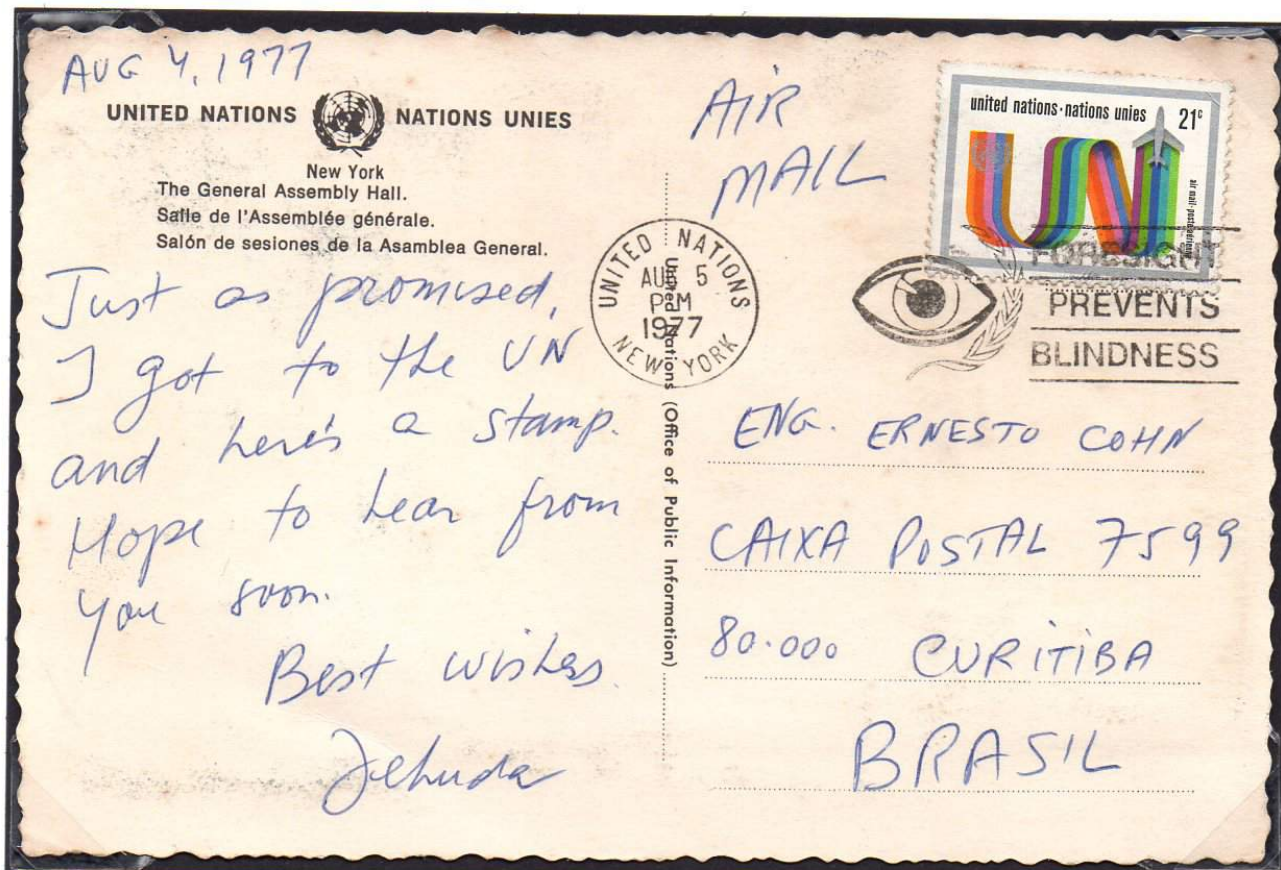 AUG 4, 1977
UNITED NATIONS NATIONS UNIES
New York
The General Assembly Hall.
Salle de l'Assemblée générale.
Salón de sesiones de la Asamblea General.
Just as promised,
I got to the UN
and here's a stamp.
Hope to hear from
you soon.
Best wishes.
Jehuda
United Nations (Office of Public Information)
AIR
MAIL
united nations·nations unies 21c
UN
air mail·poste aérienne
UNITED NATIONS
AUG 5
PM
1977
NEW YORK
FORESIGHT
PREVENTS
BLINDNESS
ENG. ERNESTO COHN
CAIXA POSTAL 7599
80.000 CURITIBA
BRASIL